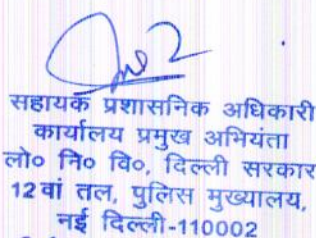 सहायक प्रशासनिक अधिकारी
कार्यालय प्रमुख अभियंता
लो० नि० वि०, दिल्ली सरकार
12वां तल, पुलिस मुख्यालय,
नई दिल्ली-110002